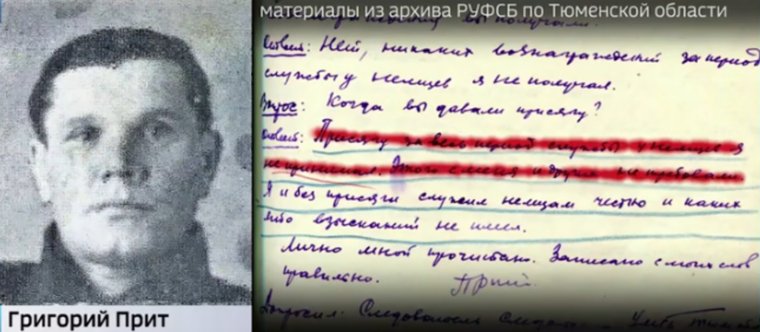 материалы из архива РУФСБ по Тюменской области
вы получали.
Ответ: Ней, никаких вознаграждений за период
службы у немцев я не получал.
Вопрос: Когда вы давали присягу?
Ответ: Присягу за весь период службы у немцев я
не принимал. Этого с меня и других не требовали
Я и без присяги служил немцам честно и каких
либо взысканий не имел.
Лично мной прочитано. Записано с моих слов
правильно. Прит
Допросил: Следователь
Григорий Прит